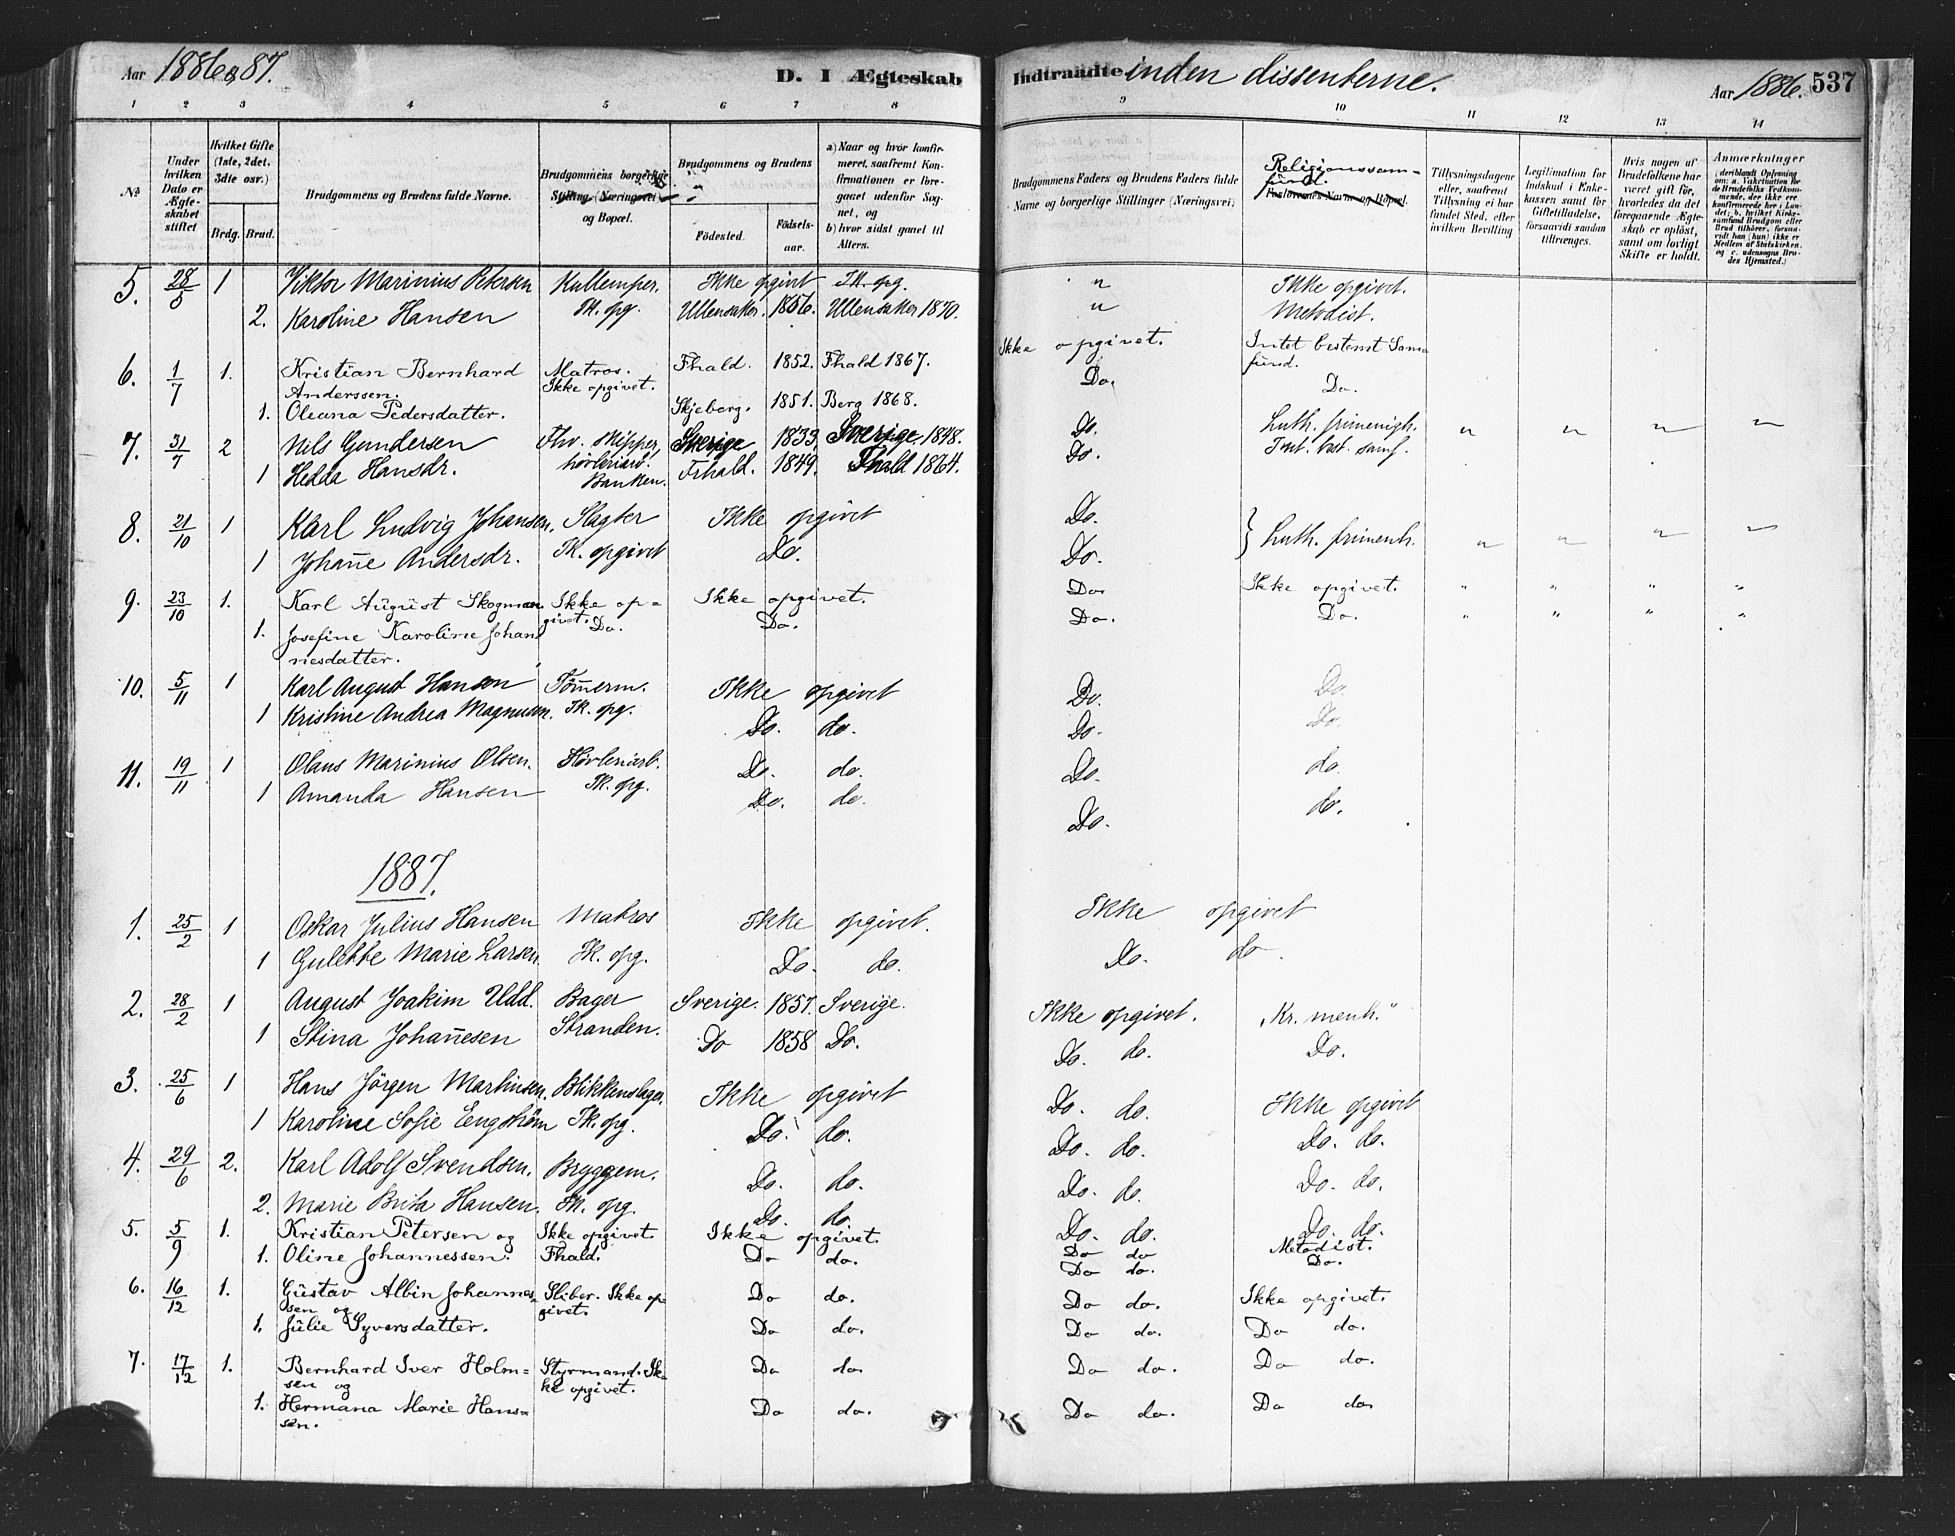 Aar 1886 & 87.
D. I Ægteskab
Indtraadte inden dissenterne.
Aar 1886. 537
1 2 3 4 5 6 7 8
9 10 11 12 13 14
No
Under hvilken Dato er Ægteskabet stiftet
Hvilket Gifte (1ste, 2det, 3die osv.)
Brdg. Brud.
Brudgommens og Brudens fulde Navne.
Brudgommens borgerlige Stilling (Næringsvei) og Bopæl.
Brudgommens og Brudens
Fødested. Fødselsaar.
a) Naar og hvor konfirmeret, saafremt Konfirmationen er foregaaet udenfor Sognet, og
b) hvor sidst gaaet til Alters.
Brudgommens Faders og Brudens Faders fulde Navne og borgerlige Stillinger (Næringsvei)
Religionssamfund.
Forlovernes Navne og Bopæl.
Tillysningsdagene eller, saafremt Tillysning ei har fundet Sted, efter hvilken Bevilling
Legitimation for Indskud i Enkekassen samt for Giftetilladelse, forsaavidt saadan tiltrænges.
Hvis nogen af Brudefolkene har været gift før, hvorledes da det foregaaende Ægteskab er opløst, samt om lovligt Skifte er holdt.
Anmærkninger
5. 28/5 1 Viktor Marinius Petersen Kullemper. Ikke opgivet Ik. opg. " Ikke opgivet.
2. Karoline Hansen Ik. opg. Ullensaker. 1856. Ullensaker 1870. " Metodist.
6. 1/7 1. Kristian Bernhard Anderssen. Matros. Ikke opgivet. Fhald. 1852. Fhald 1867. Ikke opgivet. Intet bestemt Samfund.
1. Oleana Pedersdatter. Skjeberg. 1851. Berg 1868. Do. Do.
7. 31/7 2 Nils Gundersen Fhv. skipper, Sverige 1833. Sverige 1848. Do. Luth. frimenigh. " " " "
1 Hedda Hansdr. høvleriarb. Banken. Frhald. 1849. Fhald 1864. Do. Int. bst. samf.
8. 21/10 1 Karl Ludvig Johansen, Slagter Ikke opgivet Do. } Luth. frimenh. " " " "
1 Johanne Andersdr. Ik. opgivet Do. Do.
9. 23/10 1. Karl August Skogman Ikke opgivet. Ikke opgivet. Do. Ikke opgivet. " " " "
1. Josefine Karoline Johannesdatter. Do. Do. Do. Do. " " " "
10. 5/11 1 Karl August Hansen Tømerm. Ikke opgivet Do. Do.
1 Kristine Andrea Magnusen. Ik. opg. Do. do. Do. Do.
11. 19/11 1 Olaus Marinius Olsen. Høvleriarb. Do. do. Do. do.
1 Amanda Hansen Ik. opg. Do. do. Do. do.
1887.
1. 25/2 1 Oskar Julius Hansen Matros Ikke opgivet. Ikke opgivet
1 Gulette Marie Larsen. Ik. opg. Do. do. Do. do.
2. 28/2 1 August Joakim Udd. Bager Sverige. 1857. Sverige. Ikke opgivet. "Kr. menh."
1 Stina Johannesen Stranden. Do 1858 Do. Do. do. Do.
3. 25/6 1 Hans Jørgen Martinsen. Blikkenslager. Ikke opgivet Do. do. Ikke opgivet
1 Karoline Sofie Engstrøm Ik. opg. Do. do. Do. do. Do. do.
4. 29/6 2. Karl Adolf Svendsen. Bryggem. Do. do. Do. do. Do. do.
2. Marie Brita Hansen. Ik. opg. Do. do. Do. do. Do. do.
5. 5/9 1. Kristian Petersen og Ikke opgivet. Ikke opgivet. Do do Metodist.
1. Oline Johannessen. Fhald. Do do. Do do. Do.
6. 16/12 1. Gustav Albin Johannessen og Sliber. Ikke opgivet. Do do. Do do. Ikke opgivet.
1. Julie Syversdatter. Do do. Do do. Do do.
7. 17/12 1. Bernhard Iver Holmsen og Styrmand. Ikke opgivet. Do do Do do. Do do.
1. Hermana Marie Hanssen. Do do. Do do. Do do